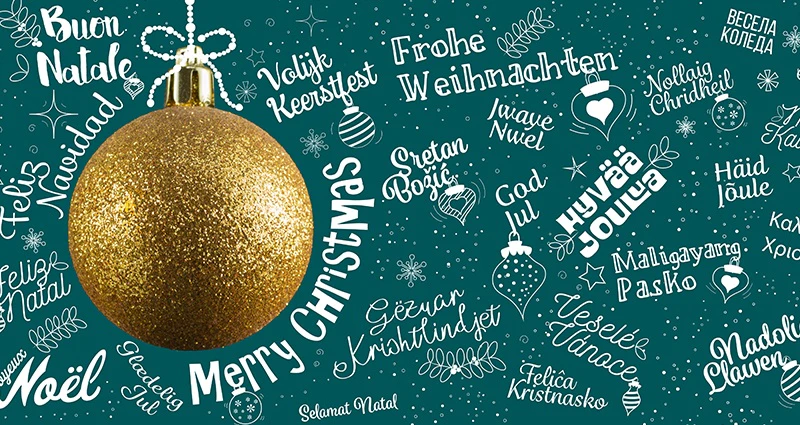 Buon
Natale
Feliz
Navidad
Volijk
Keerstfest
Frohe
Weihnachten
ВЕСЕЛА
КОЛЕДА
Nollaig
Chridheil
Jwaye
Nwel
Sretan
Božić
God
Jul
Hyvää
Joulua
Häid
Jõule
Merry Christmas
Maligayang
Pasko
Feliz
Natal
Gëzuar
Krishtlindjet
Veselé
Vánoce
Noël
Glædelig
Jul
Selamat Natal
Feliĉa
Kristnasko
Nadolig
Llawen